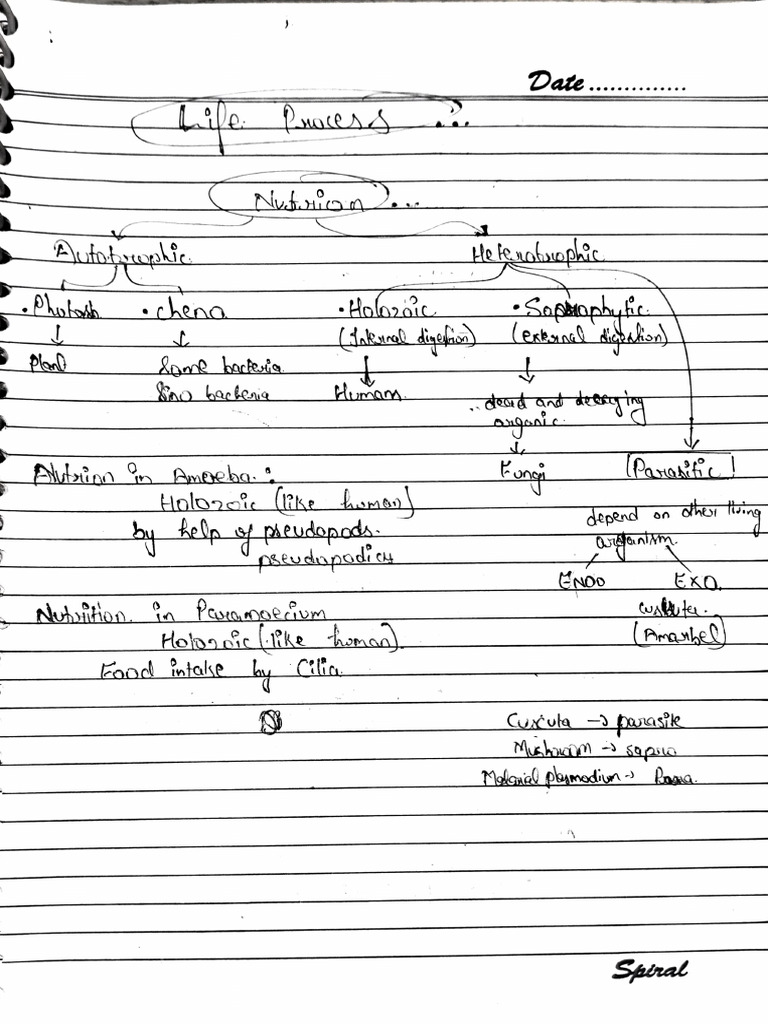 Date..............
Life Process ...
Nutrion ...
Autotrophic Heterotrophic
• Photosh • chemo • Holozoic • Saprophytic
(Internal digestion) (external digestion)
Plant Some bacteria
Sino bacteria Humans
dead and decaying
organic
Fungi (Parasitic)
Nutrion in Amoeba :
Holozoic (like human)
by help of pseudopods.
depend on other living
organism
ENDO EXO
cuscuta
(Amarbel)
Nutrition in Paramoecium
Holozoic (like human)
Food intake by Cilia
Cuscuta → parasite
Mushroom → sapro
plasmodium →
Spiral